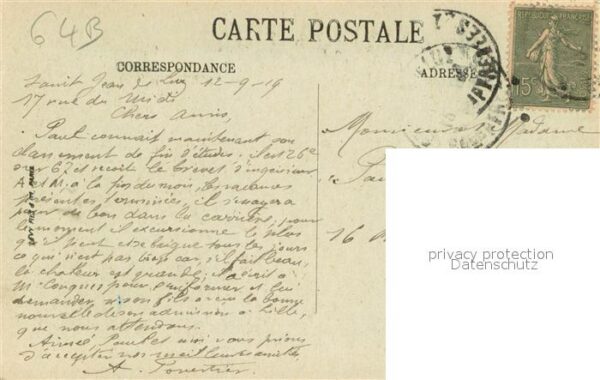 64B
CARTE POSTALE
CORRESPONDANCE
ADRESSE
REPUBLIQUE FRANÇAISE
15c
Saint Jean de Luz 12-9-19
17 rue du Midi
Chers Amis,
Paul connait maintenant son
classement de fin d'études. Il est 26e
sur 67 et reçoit le brevet d'ingénieur
A et M, à la fin du mois, les vacances
présentes terminées, il s'essayera
pour de bon dans la carrière; pour
le moment il excursionne le plus
qu'il peut et se baigne tous les jours
ce qui n'est pas car, s'il fait beau,
la chaleur est grande; il a écrit à
M. pour l'informer et lui
demander si son fils a eu la bonne
nouvelle de son admission à Lille,
que nous attendons.
Aimée, Paul et moi vous prions
d'accepter nos meilleures amitiés
A.
Monsieur et Madame
16
privacy protection
Datenschutz